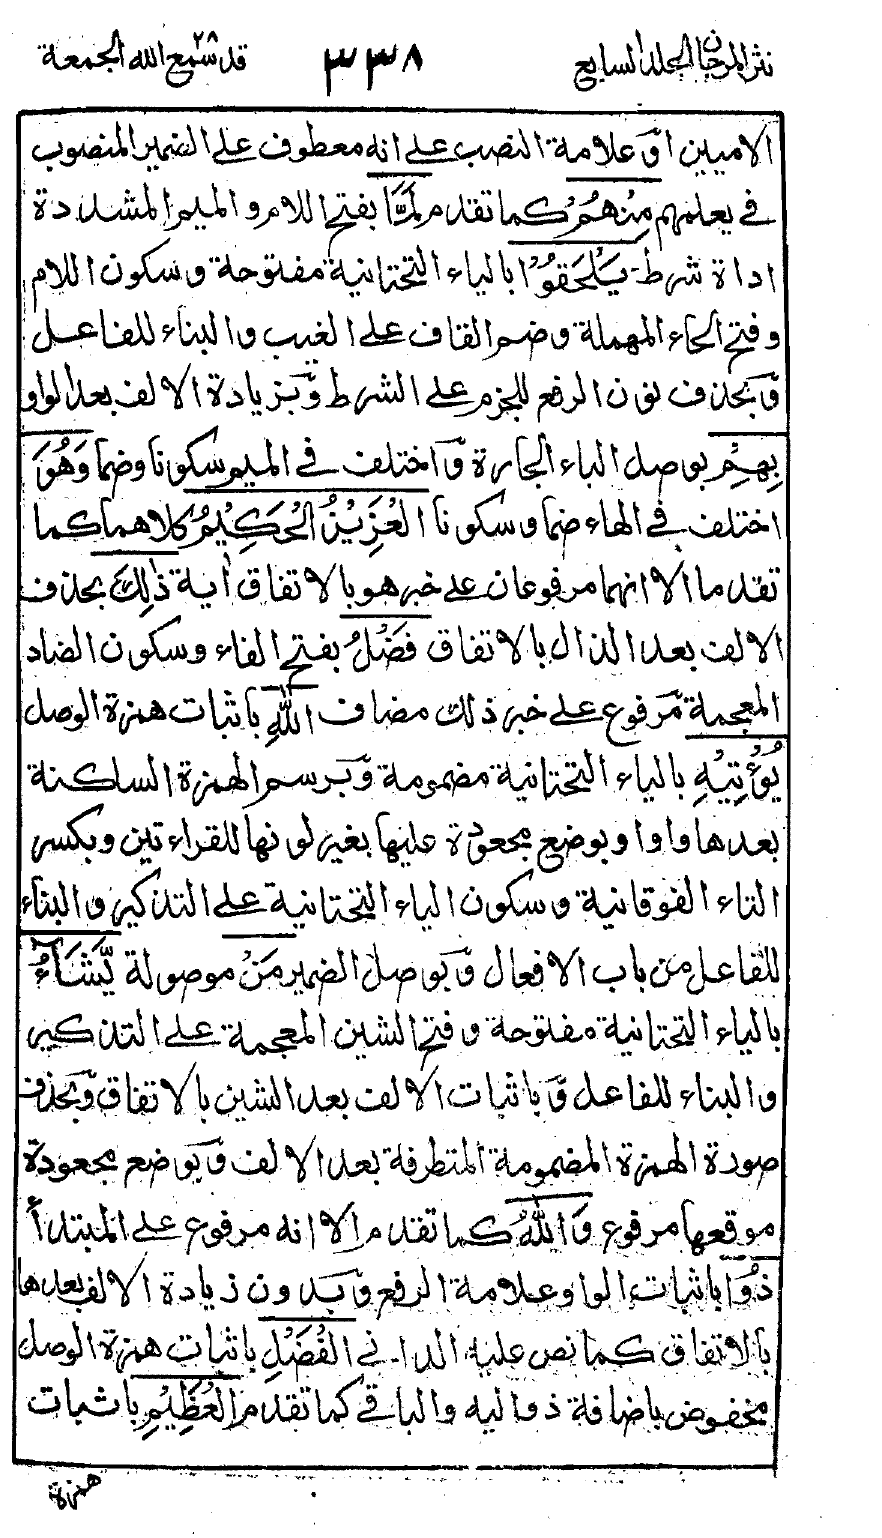 نثر المرجان المجلد السابع
٣٣٨
قد سمع الله ٢٨ الجمعة
الاميين اوّ علامة النصب على انه معطوف على الضمير المنصوب
في يعلمهم مِنْهُمْ كما تقدم لَمَّا بفتح اللام و الميم المشددة
اداة شرط يَلْحَقُوْا بالياء التحتانية مفتوحة و سكون اللام
و فتح الحاء المهملة و ضم القاف على الغيب والبناء للفاعل
وّبحذف نون الرفع للجزم على الشرط وّبزيادة الالف بعد الواو
بِهِمْ بوصل الباء الجارة وّاختلف في الميم سكونا وضما وَهُوَ
اختلف في الهاء ضما و سكونا الْعَزِيْزُ الْحَكِيْمُ كلاهما كما
تقدما الا انهما مرفوعان على خبر هو بالاتفاق أية ذٰلِكَ بحذف
الالف بعد الذال بالاتفاق فَضْلُ بفتح الفاء و سكون الضاد
المعجمة مّرفوع على خبر ذلك مضاف اللّٰهِ باثبات همزة الوصل
يُؤْتِيْهِ بالياء التحتانية مضمومة وّبرسم الهمزة الساكنة
بعدها واوا و بوضع مجعودة عليها بغير لونها للقراءتين و بكسر
التاء الفوقانية و سكون الياء التحتانية على التذكير والبناء
للفاعل من باب الافعال وّبوصل الضمير مَنْ موصولة يَّشَآءُ
بالياء التحتانية مفتوحة و فتح الشين المعجمة على التذكير
والبناء للفاعل وّباثبات الالف بعد الشين بالاتفاق وّبحذف
صورة الهمزة المضمومة المتطرفة بعد الالف وّبوضع مجعودة
موقعها مرفوع وَاللّٰهُ كما تقدم الا انه مرفوع على المبتدأ
ذُوْ باثبات الواو علامة الرفع وّبدون زيادة الالف بعدها
بالاتفاق كما نص عليه الداني الْفَضْلِ باثبات همزة الوصل
مخفوض باضافة ذو اليه والباقي كما تقدم الْعَظِيْمِ باثبات
همزة